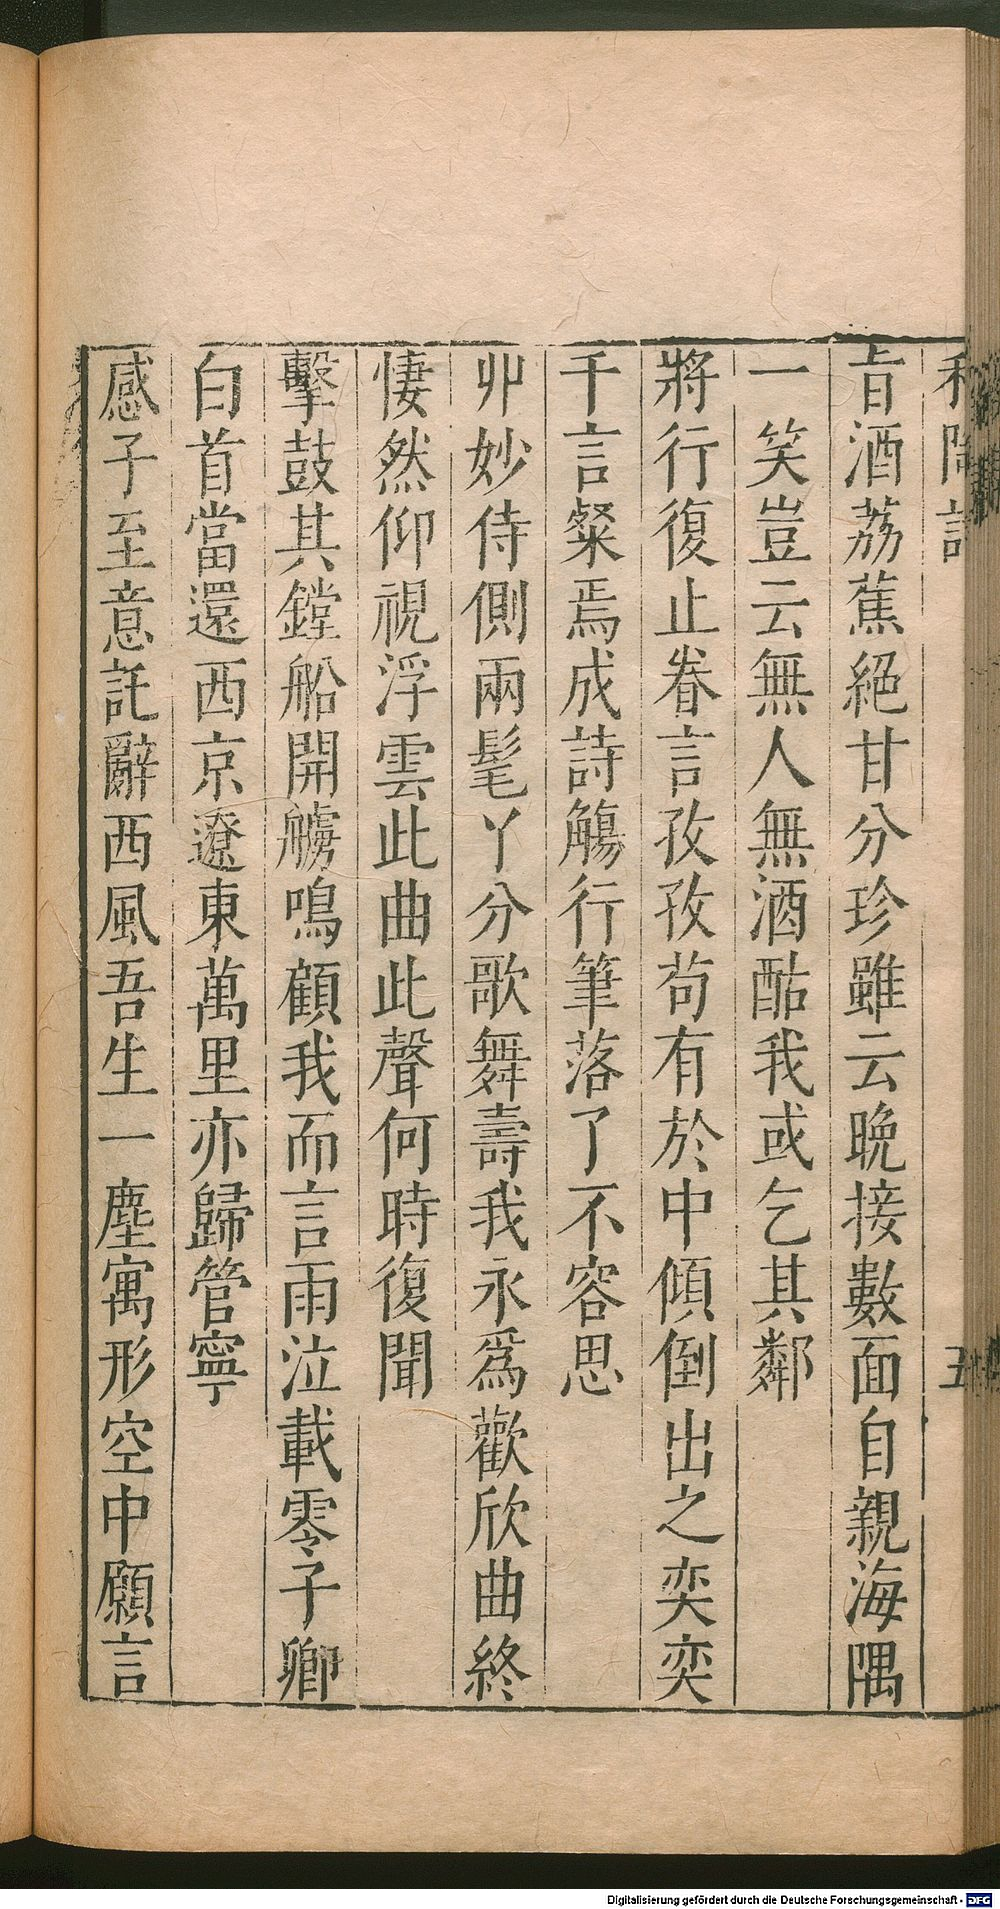 和陶詩 五
旨酒荔蕉絕甘分珍雖云晚接數面自親海隅
一笑豈云無人無酒酤我或乞其鄰
將行復止眷言孜孜苟有於中傾倒出之奕奕
千言粲焉成詩觴行筆落了不容思
丱妙侍側兩髦丫分歌舞壽我永為歡欣曲終
悽然仰視浮雲此曲此聲何時復聞
擊鼓其鏜船開艣鳴顧我而言雨泣載零子卿
白首當還西京遼東萬里亦歸管寧
感子至意託辭西風吾生一塵寓形空中願言
Digitalisierung gefördert durch die Deutsche Forschungsgemeinschaft - DFG